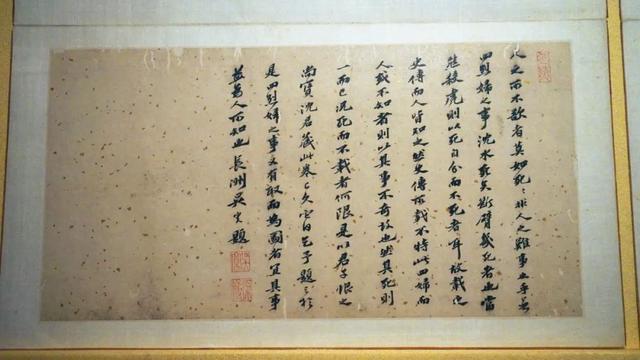 人之所不欲者莫如死〻非人之難事也乎若
四烈婦之事沈水死矣斷臂幾死者也當
熊殺虎則以死自分而不死者耳故載之
史傳而人皆知之然史傳所載不特此四婦而
人或不知者則以其事不奇故也然其死則
一而已況死而不載者何限是以君子恨之
尚寶沈君藏此卷已久白乞予題〻於
是四烈婦之事又有取而為圖者宜其事
益為人所知也長洲吳寬題